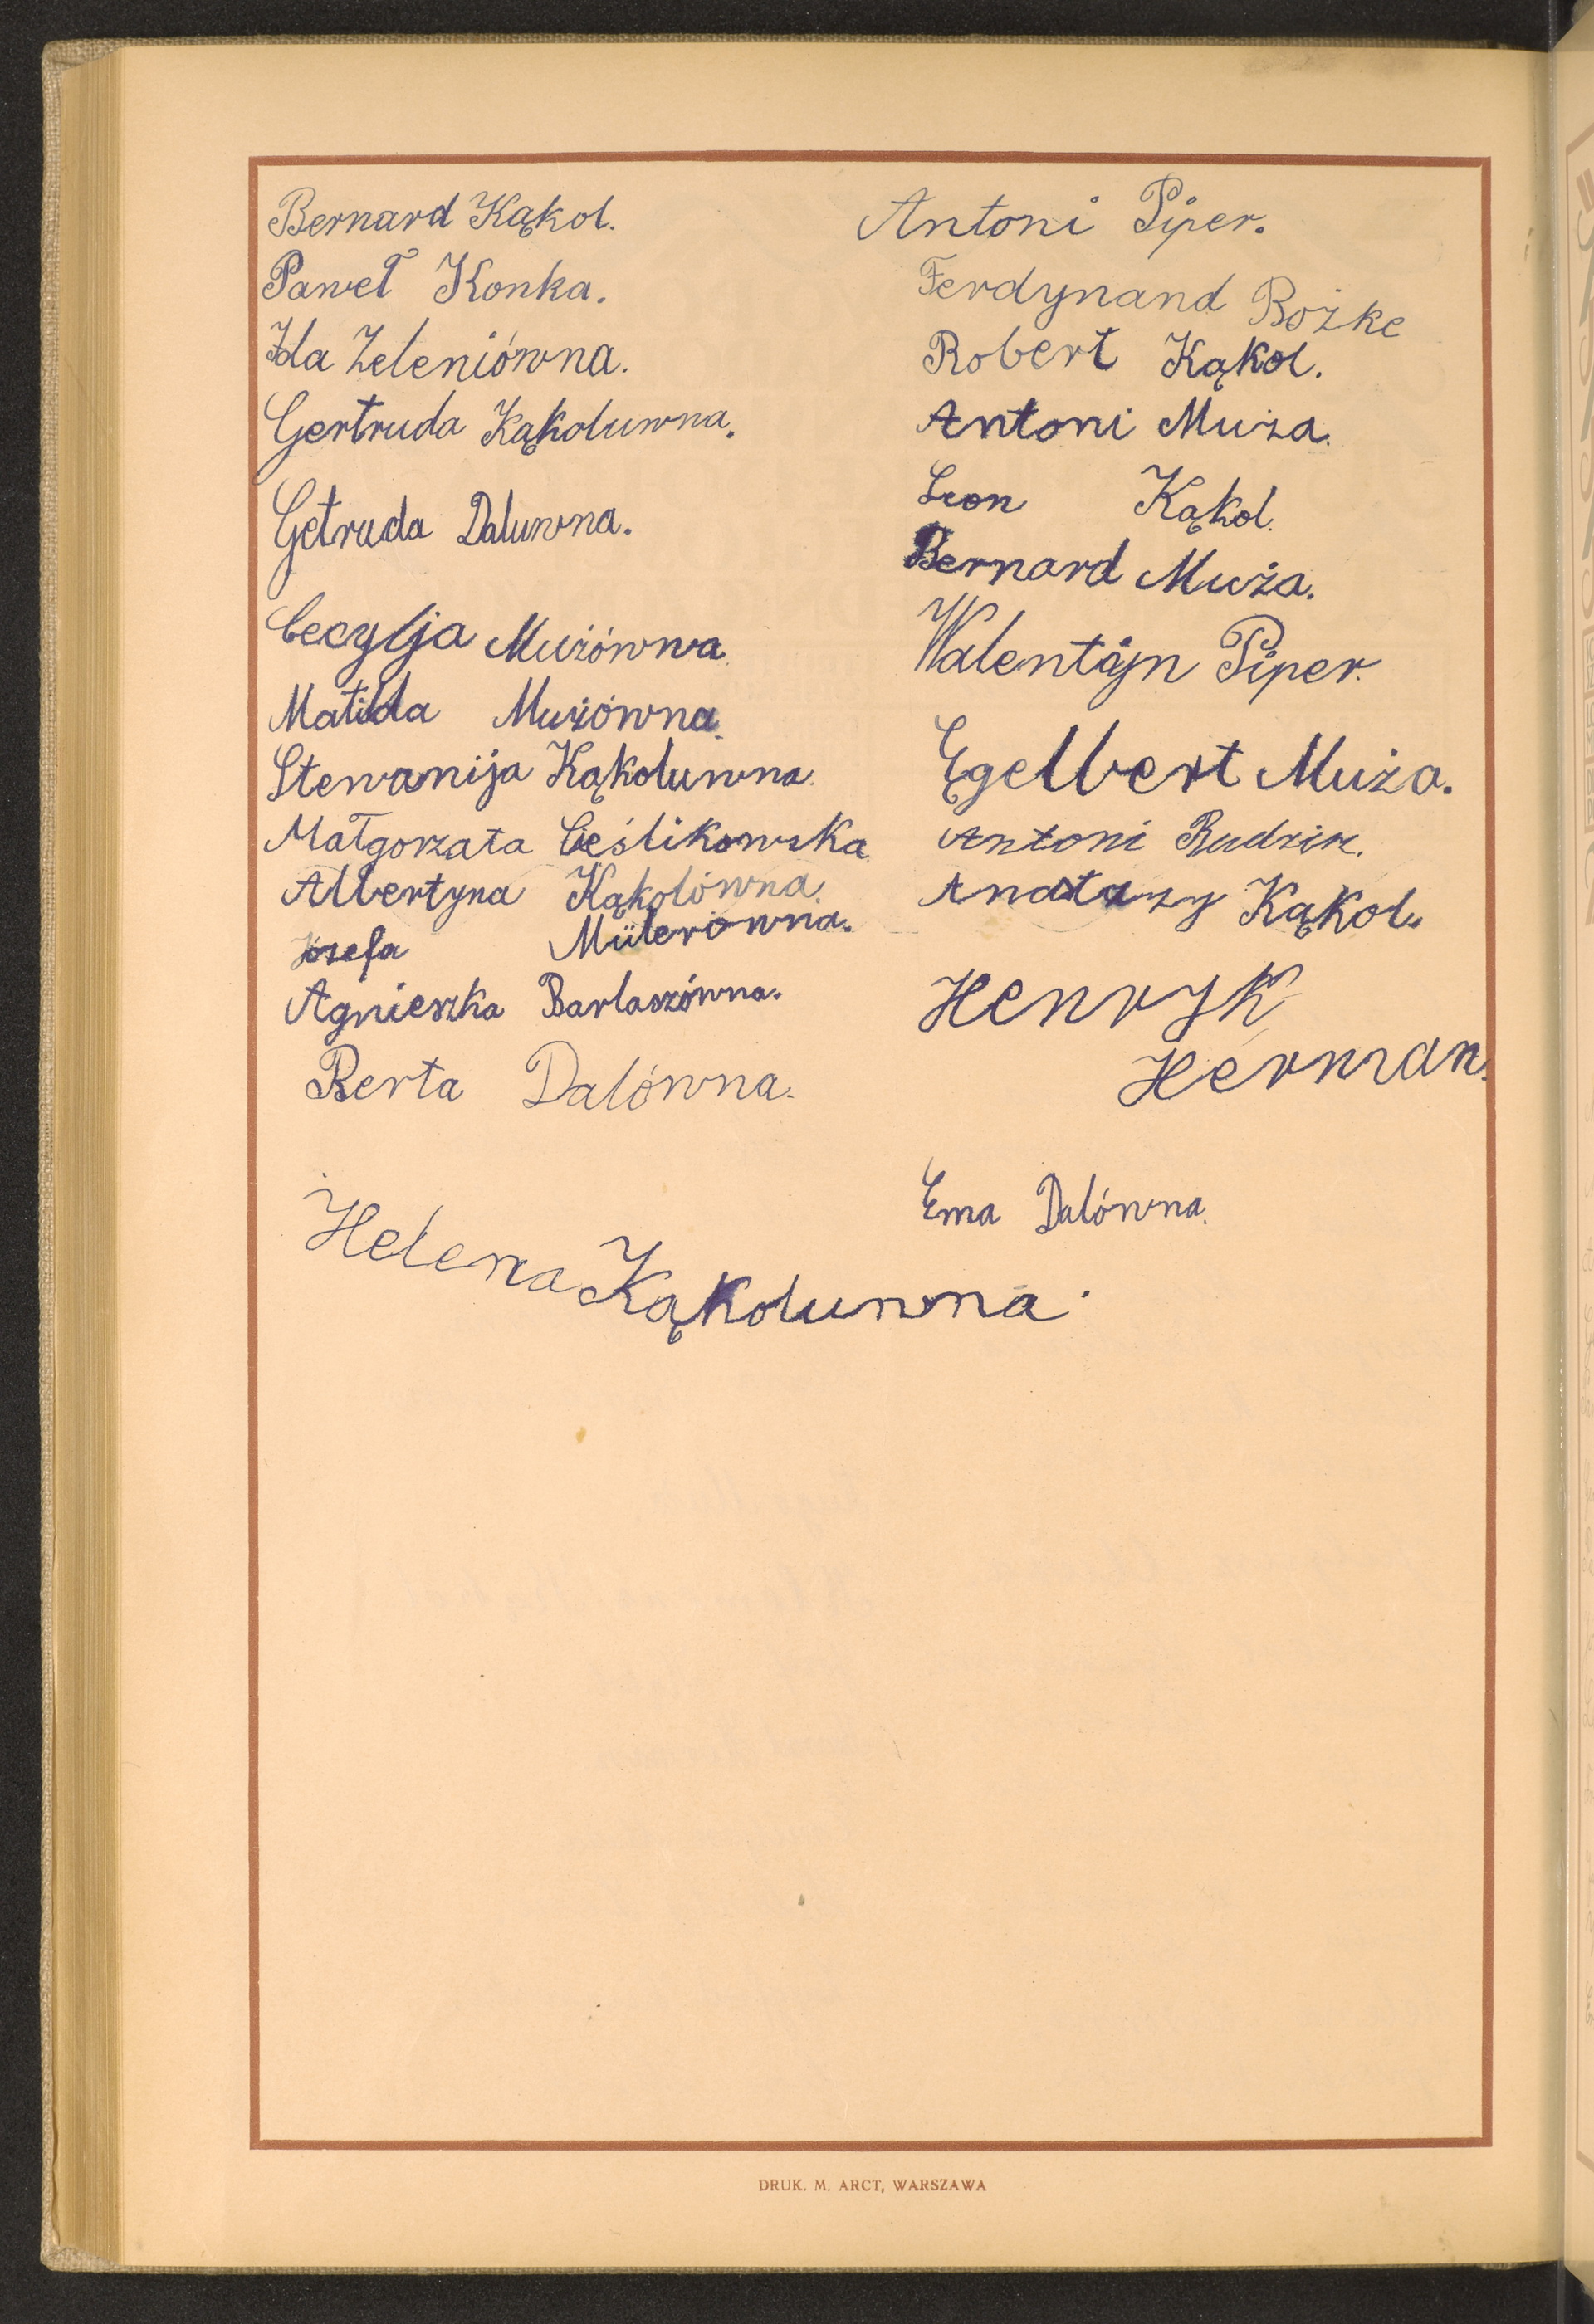 Bernard Kąkol.
Paweł Konka.
Ida Zeleniówna.
Gertruda Kąkoluwna.
Getruda Daluwna.
Cecylja Mużówna.
Matilda Mużówna.
Stewanija Kąkoluwna.
Małgorzata Cieślikowska
Albertyna Kąkolówna.
Józefa Mülerówna.
Agnieszka Barlaszówna.
Berta Dalówna.
Helena Kąkoluwna.
Antoni Piper.
Ferdynand Bożke
Robert Kąkol.
Antoni Muża.
Leon Kąkol.
Bernard Muża.
Walentyn Piper.
Egelbert Muża.
Antoni Rudzik.
Anatazy Kąkol.
Henryk
Herman.
Ema Dalówna.
DRUK. M. ARCT, WARSZAWA